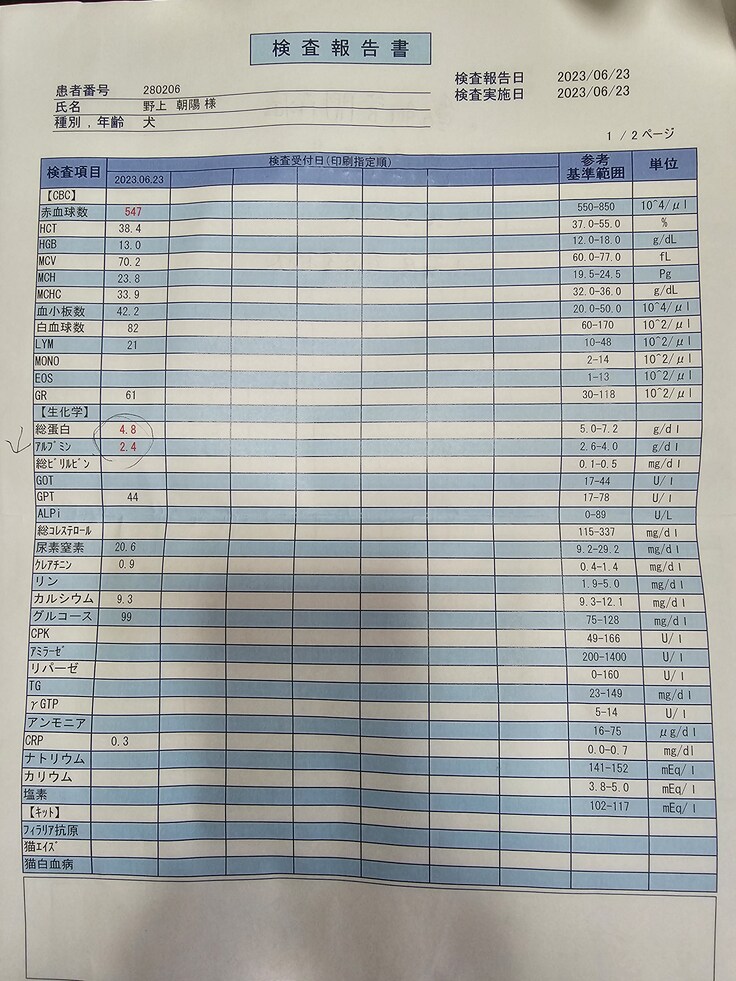 検査報告書
検査報告日 2023/06/23
検査実施日 2023/06/23
患者番号 280206
氏名 野上 朝陽 様
種別,年齢 犬
1 / 2 ページ
検査項目 検査受付日(印刷指定順) 参考基準範囲 単位
2023.06.23
【CBC】
赤血球数 547 550-850 10^4/μl
HCT 38.4 37.0-55.0 %
HGB 13.0 12.0-18.0 g/dL
MCV 70.2 60.0-77.0 fL
MCH 23.8 19.5-24.5 Pg
MCHC 33.9 32.0-36.0 g/dL
血小板数 42.2 20.0-50.0 10^4/μl
白血球数 82 60-170 10^2/μl
LYM 21 10-48 10^2/μl
MONO 2-14 10^2/μl
EOS 1-13 10^2/μl
GR 61 30-118 10^2/μl
【生化学】
総蛋白 4.8 5.0-7.2 g/dl
アルブミン 2.4 2.6-4.0 g/dl
総ビリルビン 0.1-0.5 mg/dl
GOT 17-44 U/l
GPT 44 17-78 U/l
ALPi 0-89 U/L
総コレステロール 115-337 mg/dl
尿素窒素 20.6 9.2-29.2 mg/dl
クレアチニン 0.9 0.4-1.4 mg/dl
リン 1.9-5.0 mg/dl
カルシウム 9.3 9.3-12.1 mg/dl
グルコース 99 75-128 mg/dl
CPK 49-166 U/l
アミラーゼ 200-1400 U/l
リパーゼ 0-160 U/l
TG 23-149 mg/dl
γGTP 5-14 U/l
アンモニア 16-75 μg/dl
CRP 0.3 0.0-0.7 mg/dl
ナトリウム 141-152 mEq/l
カリウム 3.8-5.0 mEq/l
塩素 102-117 mEq/l
【キット】
フィラリア抗原
猫エイズ
猫白血病